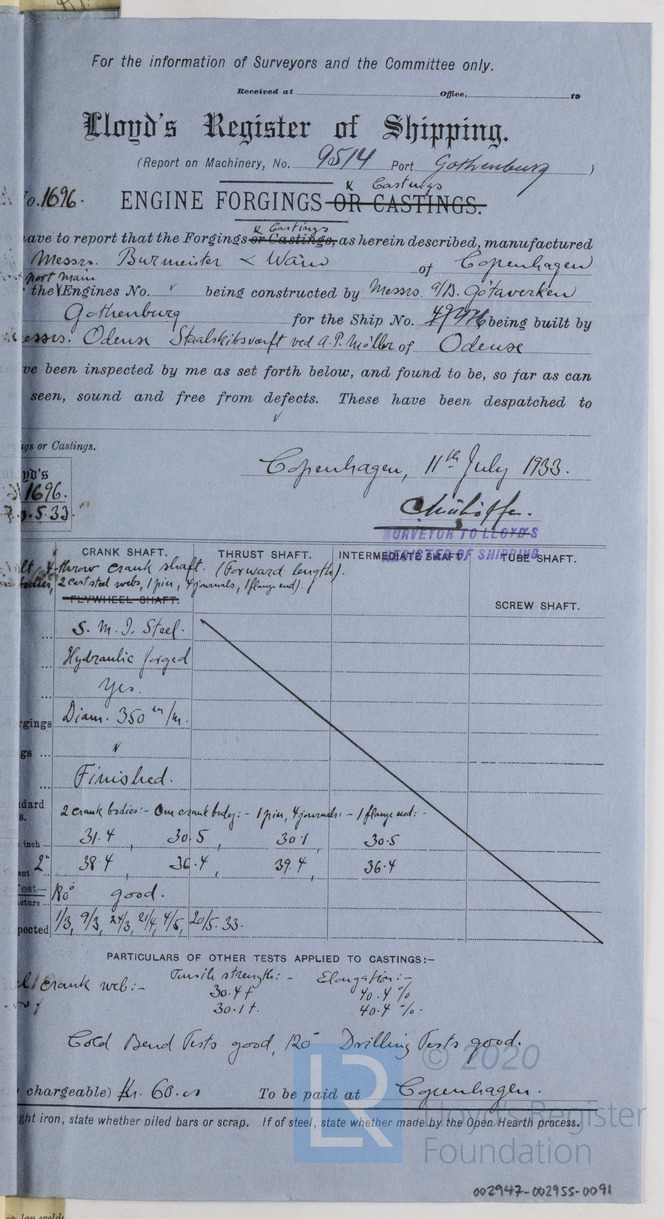 For the information of Surveyors and the Committee only.
Received at Office, 19
Lloyd's Register of Shipping.
(Report on Machinery, No. 9514 Port Gothenburg )
o. 1696. ENGINE FORGINGS & Castings OR CASTINGS.
ave to report that the Forgings & Castings or Castings, as herein described, manufactured
Messrs. Burmeister & Wain of Copenhagen
port main
the Engines No. being constructed by Messrs. A/B. Götaverken
Gothenburg for the Ship No. being built by
essrs. Odense Staalskibsværft ved A.P. Møller of Odense
ve been inspected by me as set forth below, and found to be, so far as can
seen, sound and free from defects. These have been despatched to
gs or Castings.
yd's
1696.
.5.33.
Copenhagen, 11th July 1933.
SURVEYOR TO LLOYD'S
REGISTER OF SHIPPING
CRANK SHAFT. THRUST SHAFT. INTERMEDIATE SHAFT. TUBE SHAFT.
4-throw crank shaft. (Forward length).
bodies, 2 cast steel webs, 1 pin, 4 journals, 1 flange end).
FLYWHEEL SHAFT. SCREW SHAFT.
S. M. I. Steel.
Hydraulic forged
Yes.
rgings Diam. 350 m/m.
gs
Finished.
dard 2 crank bodies:- One crank body:- 1 pin, 4 journals:- 1 flange end:-
inch 31.4, 30.5, 30.1, 30.5
ent 2" 38.4, 36.4, 39.4, 36.4
est 180° good.
cture
pected 1/3, 9/3, 24/3, 21/4, 4/5, 20/5.33.
PARTICULARS OF OTHER TESTS APPLIED TO CASTINGS:—
crank web:- Tensile strength:- Elongation:-
30.4 t 40.4 %
30.1 t. 40.4 %.
Cold Bend Tests good, 120° Drilling Tests good.
chargeable) Kr. 60.00 To be paid at Copenhagen.
ght iron, state whether piled bars or scrap. If of steel, state whether made by the Open Hearth process.
© 2020
LR
Lloyd's Register
Foundation
002947-002955-0091